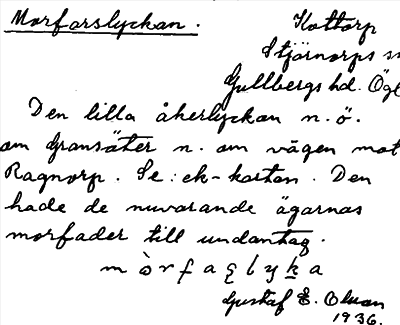 Morfarslyckan.
Kottorp
Stjärnorps ss
Gullbergs hd. Ögl
Den lilla åkerlyckan n.ö.
om Gransäter n. om vägen mot
Ragnorp. Se: ek-kartan. Den
hade de nuvarande ägarnas
morfader till undantag.
mòrfaꞬlyka
Gustaf E. Olsson
1936.